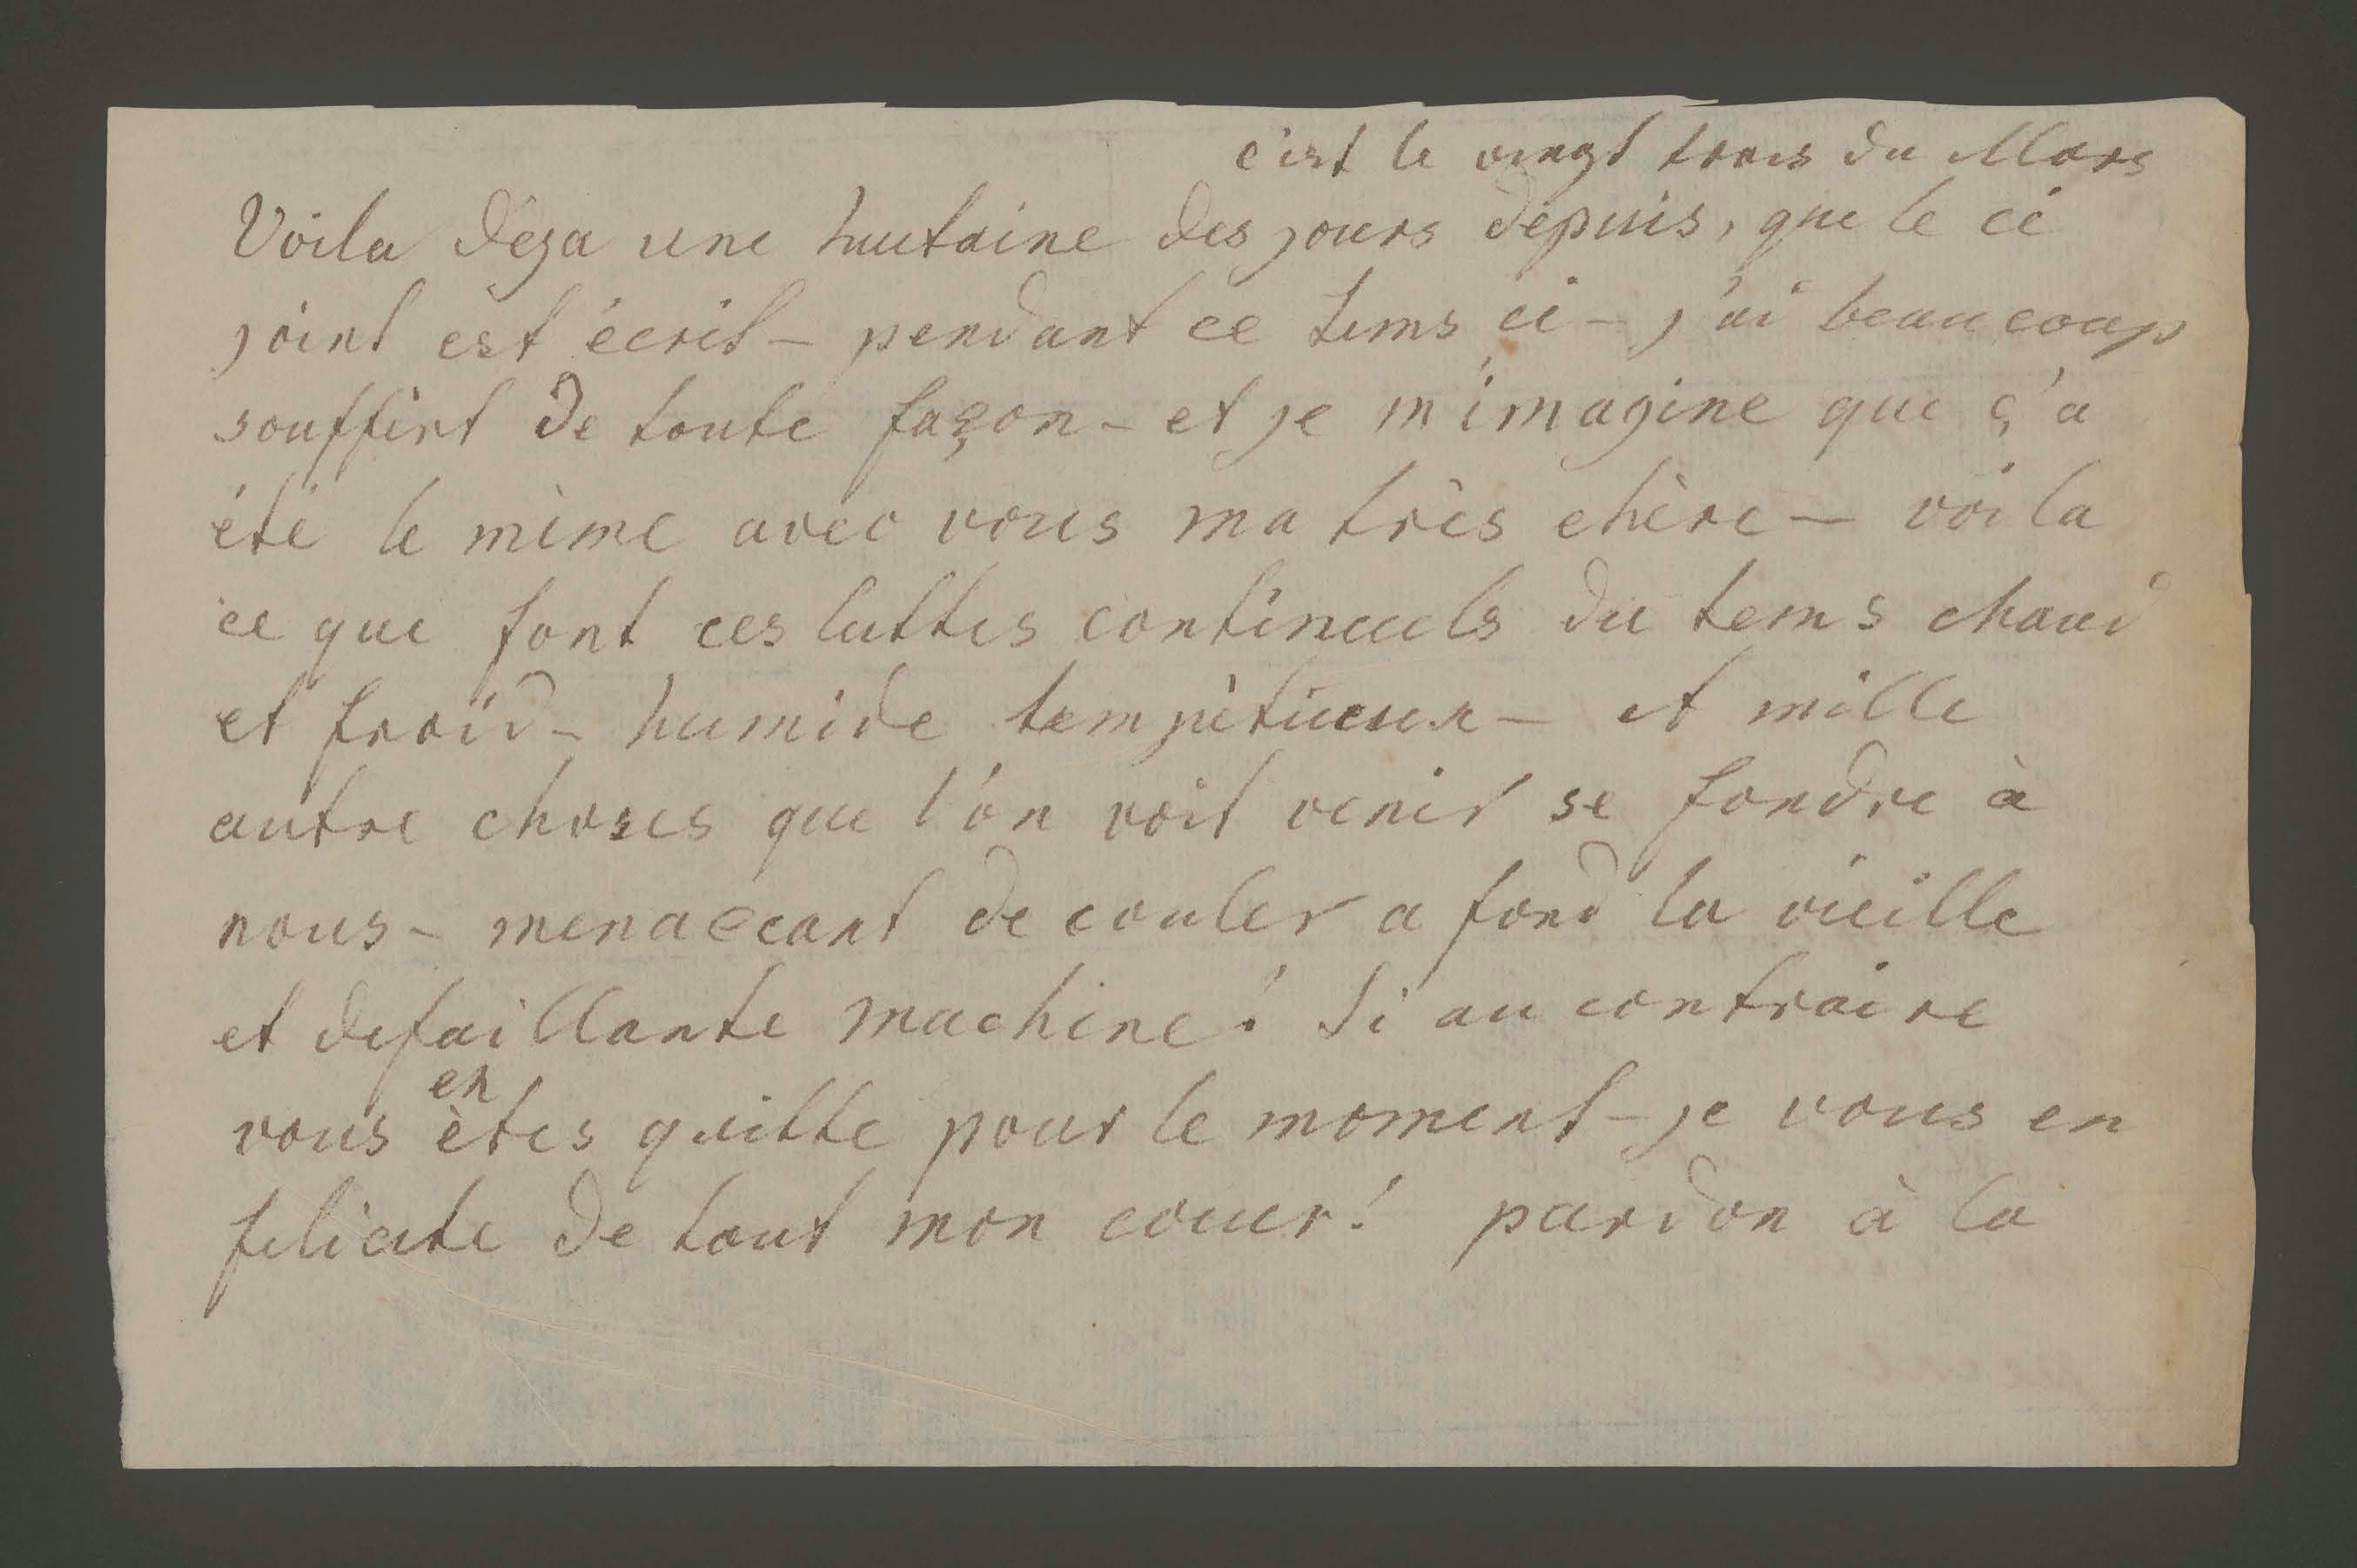 c'est le vingt trois du Mars
Voila déja une huitaine des jours depuis, que le ci
joint est écrit – pendant ce tems ci – j'ai beaucoup
souffirt de toute façon – et je m'imagine que ç'a
été le mème avec vous ma très chère – voila
ce que font ces luttes continuels du tems chaud
et froid – humide tempètueux – et mille
autre choses que l'on voit venir se fondre à
nous – menaccant de couler a fond la vieille
et defaillante machine! Si au contraire
en
vous ètes quitte pour le moment – je vous en
felicite de tout mon couer! pardon à la